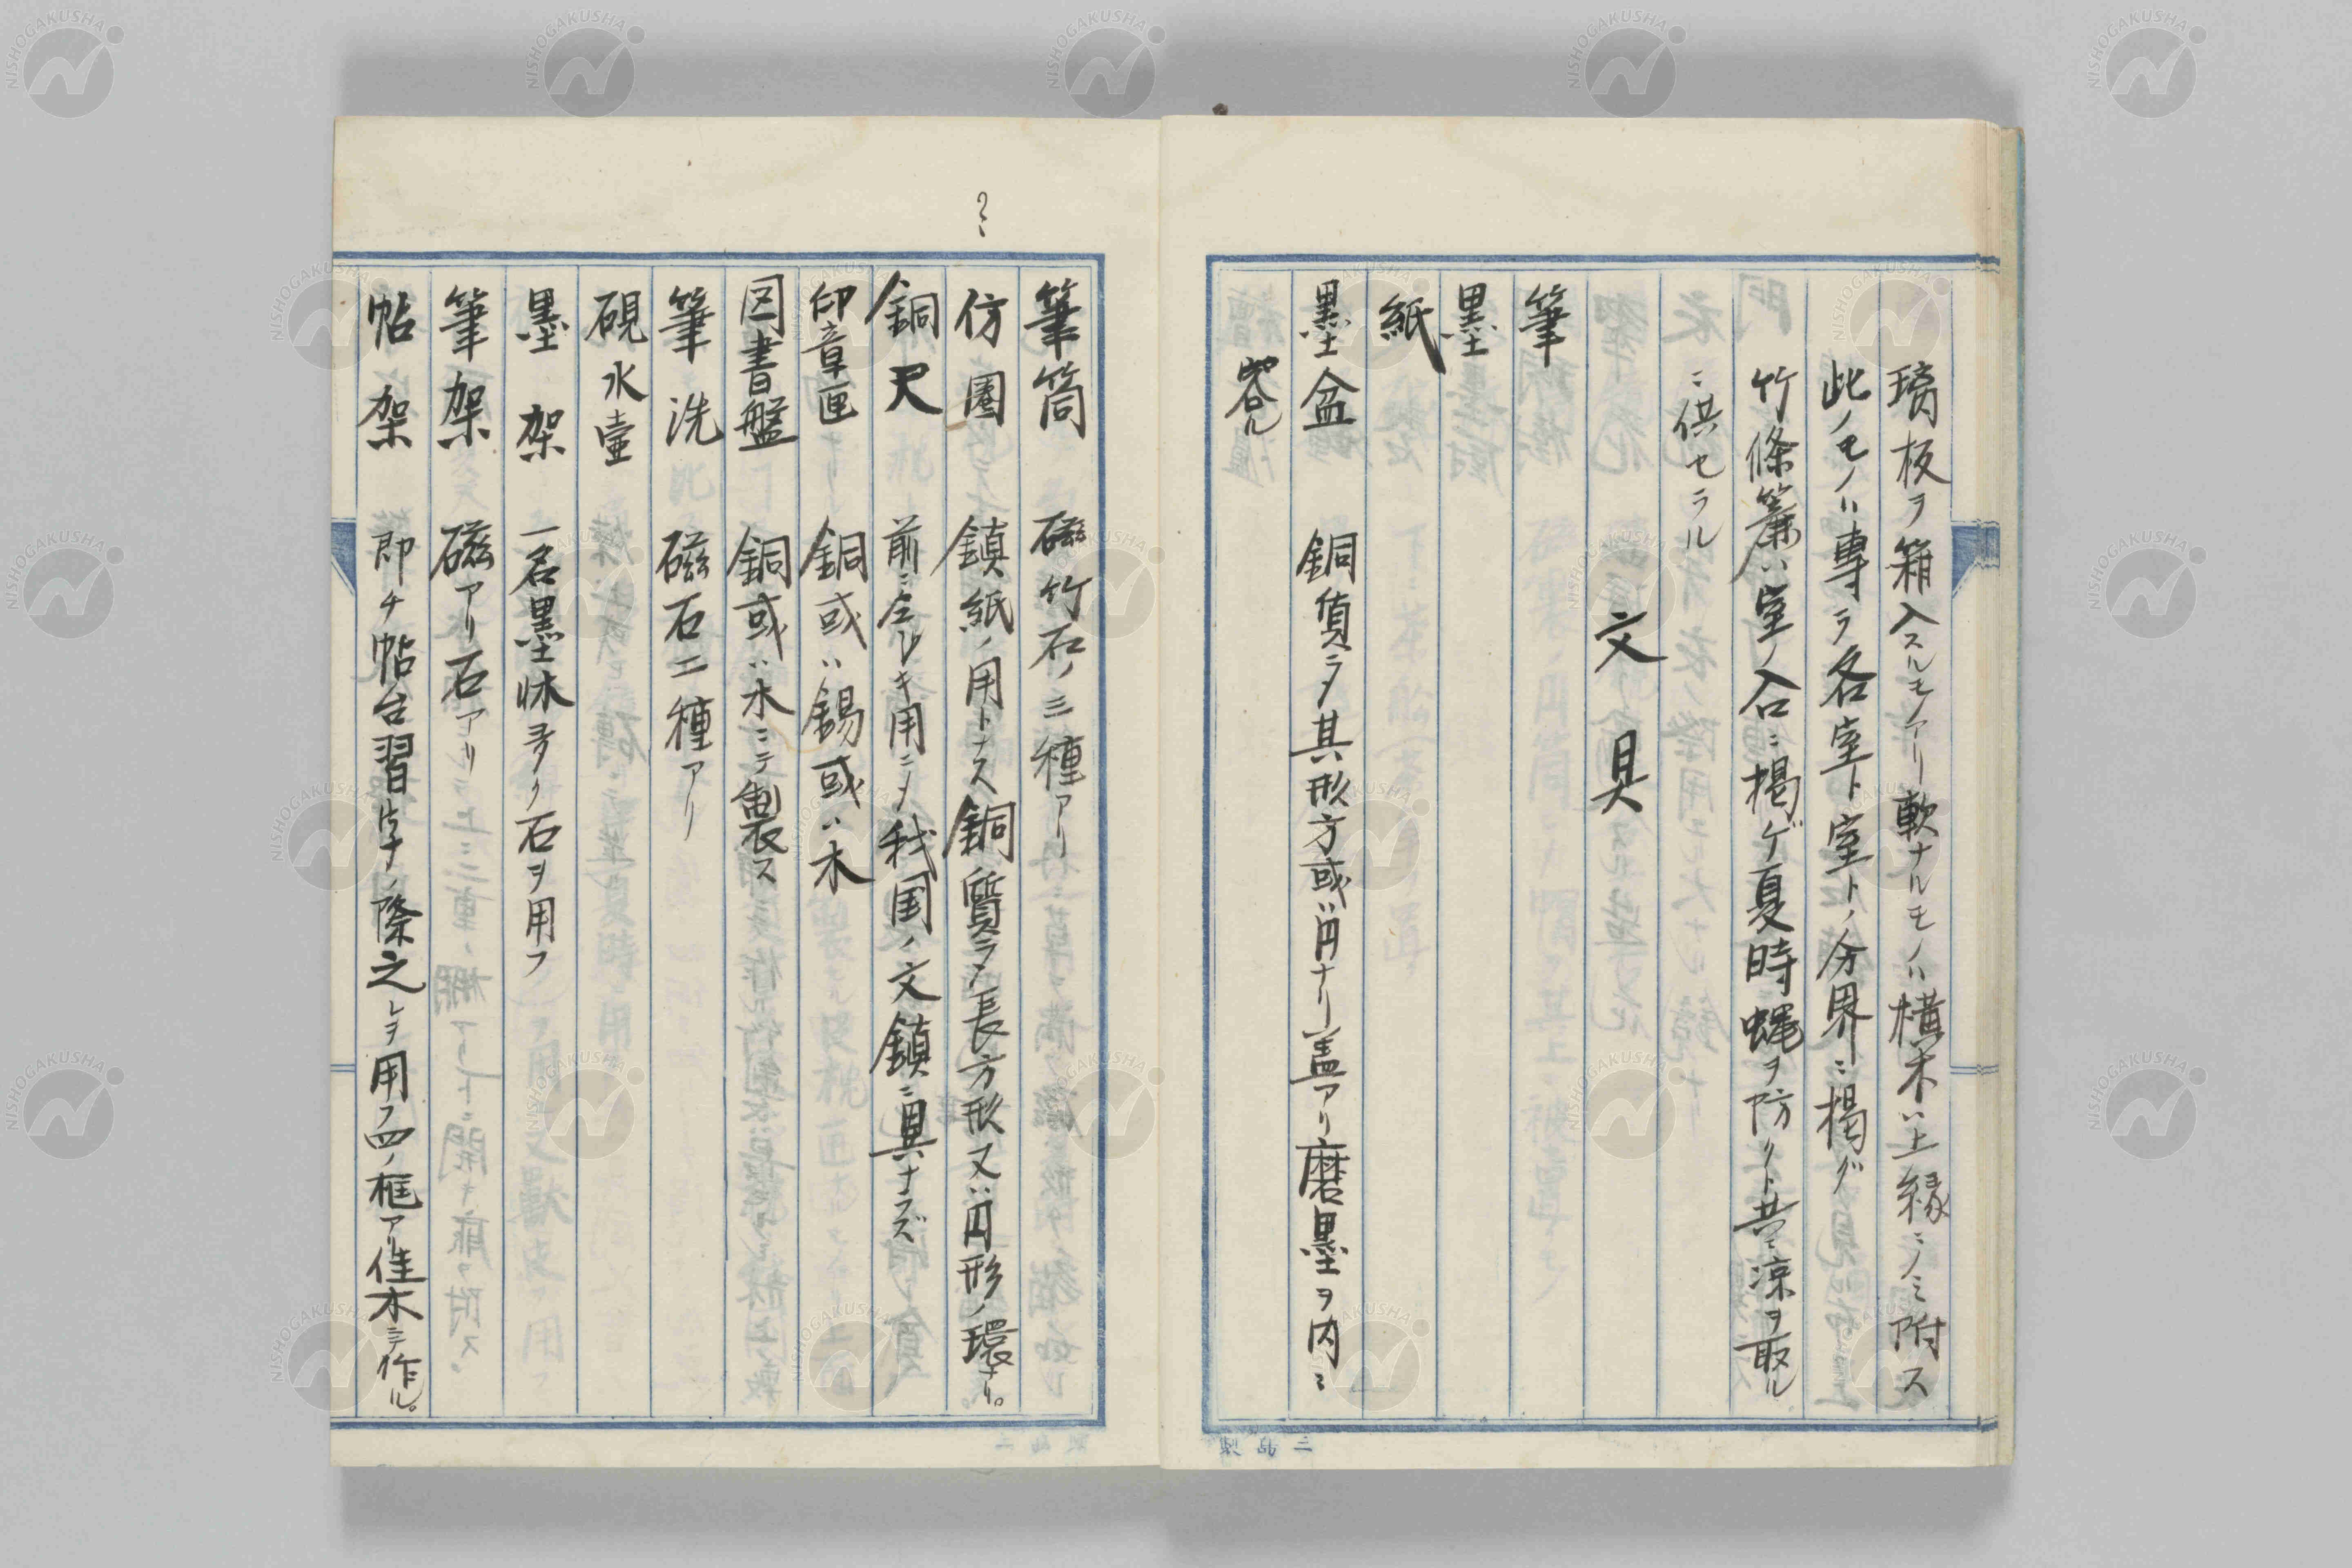 璃板ヲ箱入スルモノアリ軟ナルモノハ横木ハ上縁ニノミ附ス
此ノモノハ専ラ各室ト室トノ分界ニ掲グ
竹條簾ハ室ノ入口ニ掲ゲ夏時蠅ヲ防クト共ニ涼ヲ取ル
ニ供セラル
文具
筆
墨
紙
墨盆 銅質ニシテ其形方或ハ円ナリ盖アリ磨墨ヲ内ニ
容ル
筆筒 磁竹石ノ三種アリ
仿圏 鎮紙ノ用トナス銅質ニシテ長方形又ハ円形ノ環ナリ。
銅尺 前ニ仝ジキ用ニシテ我国ノ文鎮ニ異ナラズ
印章匣 銅或ハ錫或ハ木
図書盤 銅或ハ木ニテ製ス
筆洗 磁石二種アリ
硯水壷
墨架 一名墨牀多ク石ヲ用フ
筆架 磁アリ石アリ
帖架 即チ帖台習字ノ際之レヲ用フ四ノ框アリ佳木ニテ作ル。
三島製
NISHOGAKUSHA